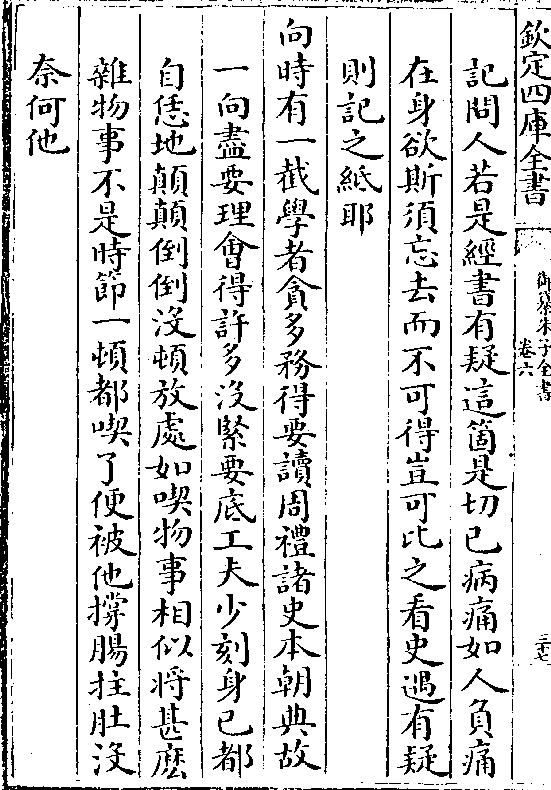 欽定四庫全書
御纂朱子全書
卷六
三十七
記問人若是經書有疑這箇是切已病痛如人負痛
在身欲斯須忘去而不可得豈可比之看史遇有疑
則記之紙耶
向時有一截學者貪多務得要讀周禮諸史本朝典故
一向盡要理會得許多沒緊要底工夫少刻身已都
自恁地顛顛倒倒沒頓放處如喫物事相似將甚麽
雜物事不是時節一頓都喫了便被他撐腸拄肚沒
奈何他